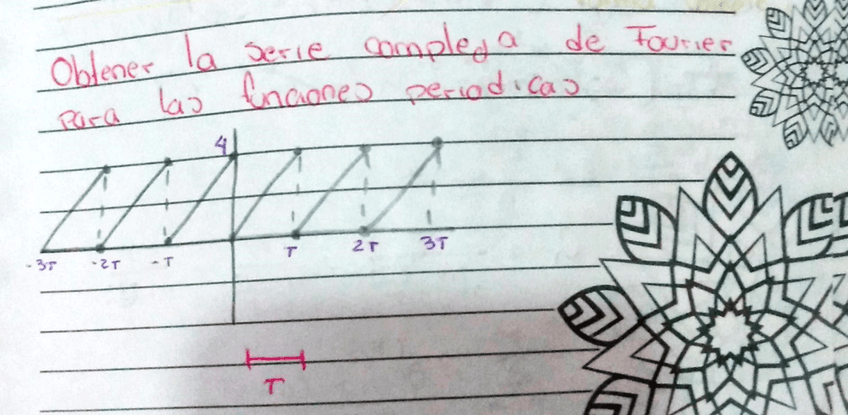 Obtener la serie compleja de Fourier
para las funciones periodicas
4
-3T -2T -T T 2T 3T
T